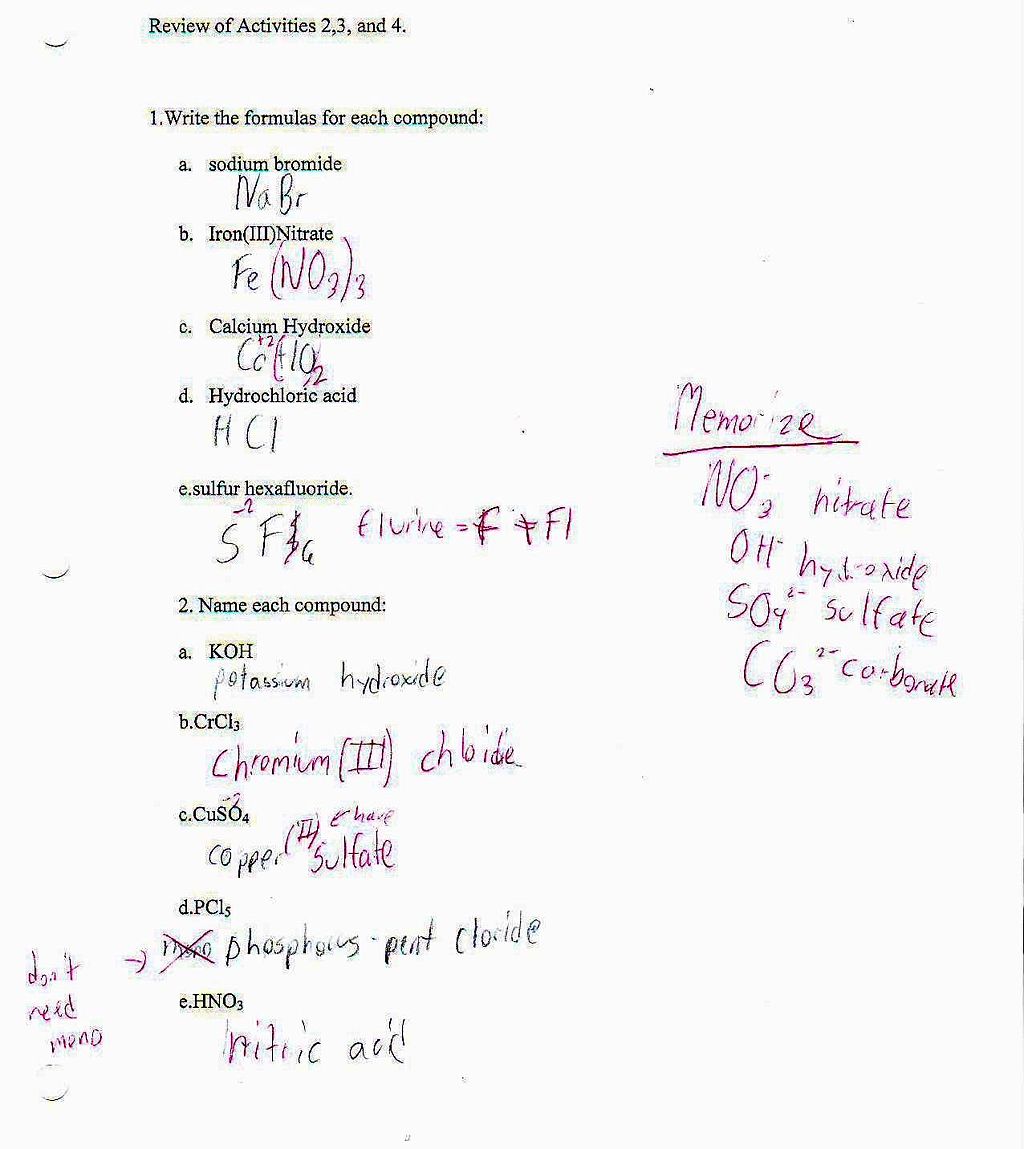 Review of Activities 2,3, and 4.
1.Write the formulas for each compound:
a. sodium bromide
NaBr
b. Iron(III)Nitrate
Fe (NO3)3
c. Calcium Hydroxide
Ca+2
d. Hydrochloric acid
HCl
e.sulfur hexafluoride.
-2
S F 6 flurine = F ≠ Fl
Memorize
NO3- nitrate
OH- hydroxide
SO4 2- sulfate
CO3 2- carbonate
2. Name each compound:
a. KOH
potassium hydroxide
b.CrCl3
Chromium (III) chloide
c.CuSO4
-2
(II) ← have
copper sulfate
d.PCl5
→ mono phosphous - pent cloride
don't
need
mono
e.HNO3
nitric acid